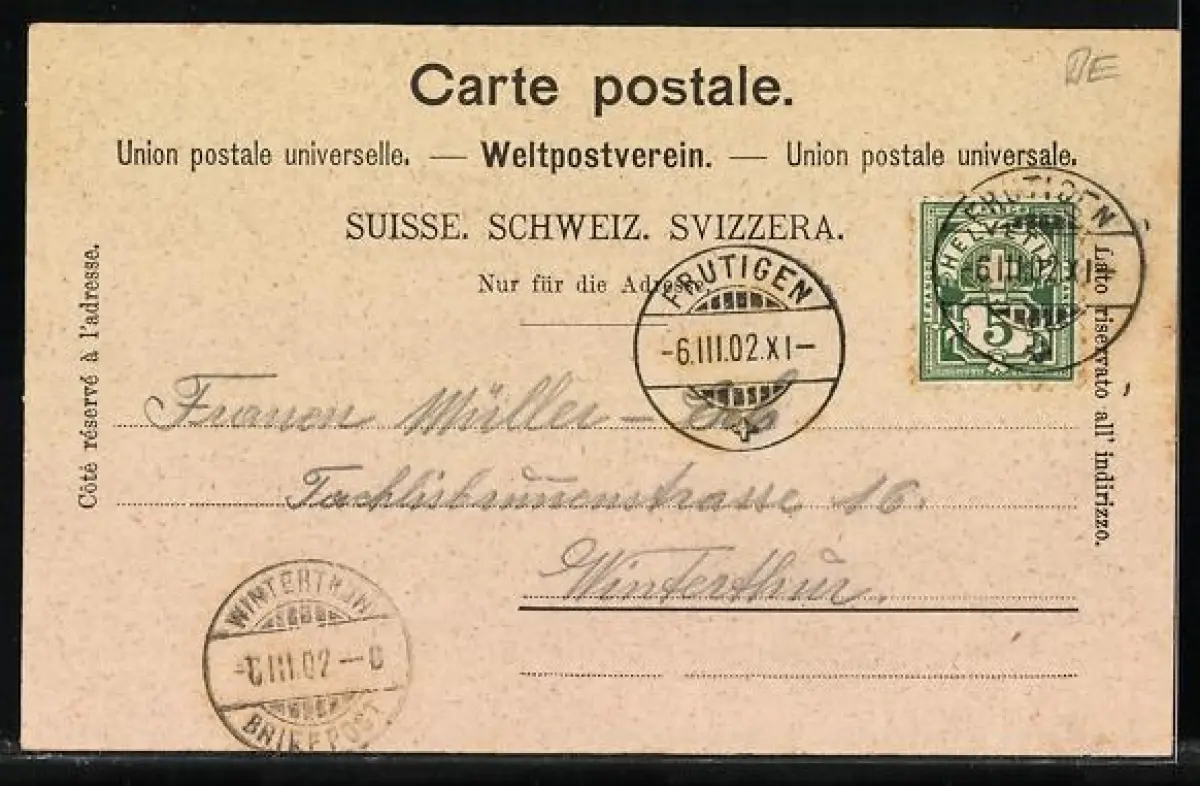 DE
Carte postale.
Union postale universelle. — Weltpostverein. — Union postale universale.
SUISSE. SCHWEIZ. SVIZZERA.
Nur für die Adresse
Côté réservé à l'adresse.
Lato riservato all' indirizzo.
FRUTIGEN
HELVETIA
FRANCO
5
-6.III.02.XI-
FRUTIGEN
-6.III.02.XI-
Frauen Müller -
Tachlisbrunnenstrasse 16.
Winterthur.
WINTERTHUR
III.02
BRIEFPOST